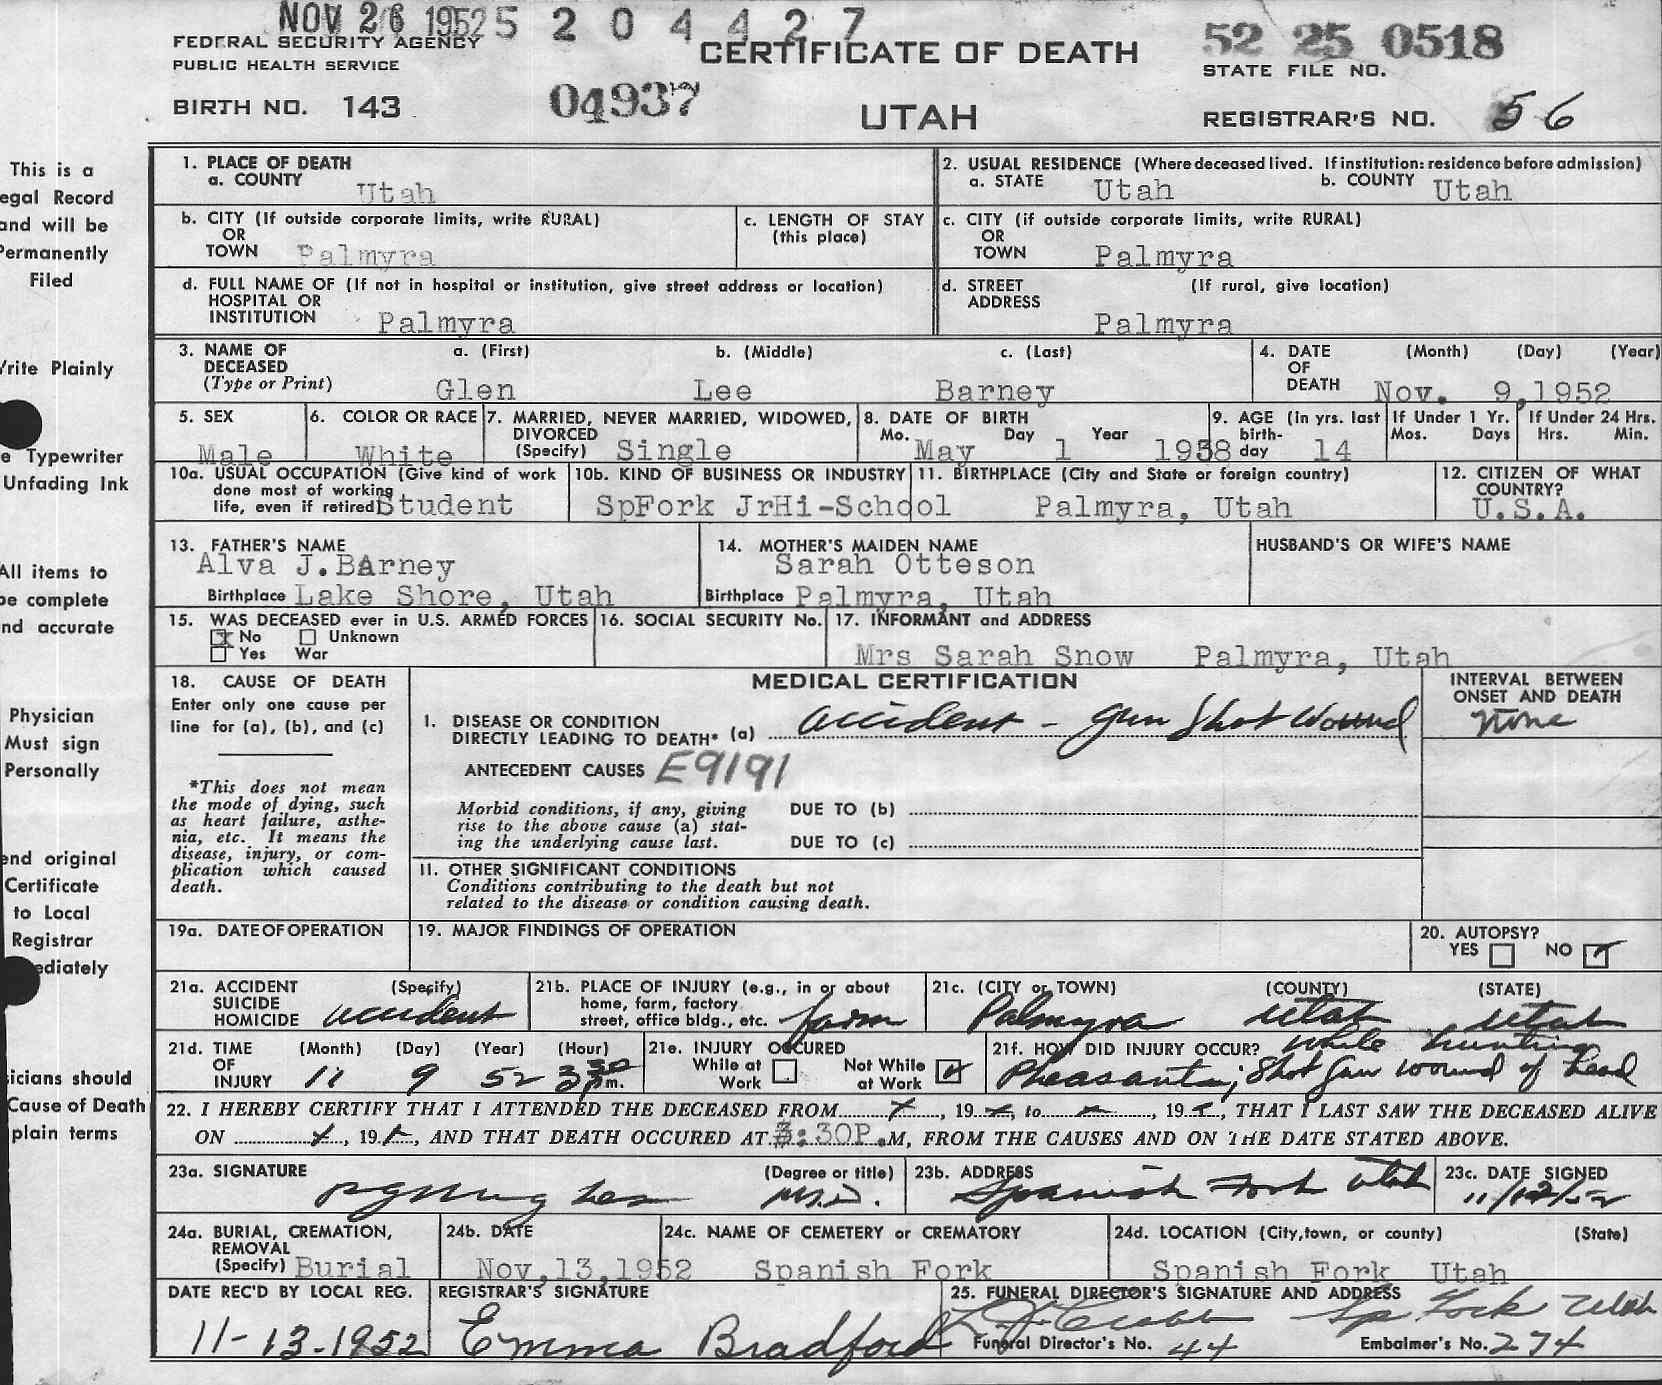 NOV 26 1952 5 2 0 4 4 2 7
FEDERAL SECURITY AGENCY
PUBLIC HEALTH SERVICE
CERTIFICATE OF DEATH
52 25 0518
STATE FILE NO.
BIRTH NO. 143
04937
UTAH
REGISTRAR'S NO. 56
This is a
egal Record
and will be
Permanently
Filed
Write Plainly
e Typewriter
Unfading Ink
All items to
be complete
nd accurate
Physician
Must sign
Personally
end original
Certificate
to Local
Registrar
ediately
icians should
Cause of Death
plain terms
1. PLACE OF DEATH
a. COUNTY Utah
2. USUAL RESIDENCE (Where deceased lived. If institution: residence before admission)
a. STATE Utah b. COUNTY Utah
b. CITY (If outside corporate limits, write RURAL)
OR
TOWN Palmyra
c. LENGTH OF STAY
(this place)
c. CITY (if outside corporate limits, write RURAL)
OR
TOWN Palmyra
d. FULL NAME OF (If not in hospital or institution, give street address or location)
HOSPITAL OR
INSTITUTION Palmyra
d. STREET (If rural, give location)
ADDRESS
Palmyra
3. NAME OF DECEASED (Type or Print)
a. (First) b. (Middle) c. (Last)
Glen Lee Barney
4. DATE OF DEATH (Month) (Day) (Year)
Nov. 9,1952
5. SEX
Male
6. COLOR OR RACE
White
7. MARRIED, NEVER MARRIED, WIDOWED,
DIVORCED
(Specify) Single
8. DATE OF BIRTH
Mo. Day Year
May 1 1938
9. AGE (in yrs. last
birth-
day 14
If Under 1 Yr.
Mos. Days
If Under 24 Hrs.
Hrs. Min.
10a. USUAL OCCUPATION (Give kind of work
done most of working
life, even if retired) Student
10b. KIND OF BUSINESS OR INDUSTRY
SpFork JrHi-School
11. BIRTHPLACE (City and State or foreign country)
Palmyra, Utah
12. CITIZEN OF WHAT
COUNTRY?
U.S.A.
13. FATHER'S NAME
Alva J.BArney
Birthplace Lake Shore, Utah
14. MOTHER'S MAIDEN NAME
Sarah Otteson
Birthplace Palmyra, Utah
HUSBAND'S OR WIFE'S NAME
15. WAS DECEASED ever in U.S. ARMED FORCES
No Unknown
Yes War
16. SOCIAL SECURITY No.
17. INFORMANT and ADDRESS
Mrs Sarah Snow Palmyra, Utah
18. CAUSE OF DEATH
Enter only one cause per
line for (a), (b), and (c)
*This does not mean
the mode of dying, such
as heart failure, asthe-
nia, etc. It means the
disease, injury, or com-
plication which caused
death.
MEDICAL CERTIFICATION
INTERVAL BETWEEN
ONSET AND DEATH
none
I. DISEASE OR CONDITION
DIRECTLY LEADING TO DEATH* (a) accident - gun shot Wound
ANTECEDENT CAUSES E9191
Morbid conditions, if any, giving
rise to the above cause (a) stat-
ing the underlying cause last.
DUE TO (b)
DUE TO (c)
11. OTHER SIGNIFICANT CONDITIONS
Conditions contributing to the death but not
related to the disease or condition causing death.
19a. DATE OF OPERATION
19. MAJOR FINDINGS OF OPERATION
20. AUTOPSY?
YES NO
21a. ACCIDENT (Specify)
SUICIDE
HOMICIDE accident
21b. PLACE OF INJURY (e.g., in or about
home, farm, factory
street, office bldg., etc. farm
21c. (CITY or TOWN) (COUNTY) (STATE)
Palmyra Utah Utah
21d. TIME OF INJURY
(Month) (Day) (Year) (Hour)
11 9 52 3 30 p m.
21e. INJURY OCCURED
While at Work
Not While at Work
21f. HOW DID INJURY OCCUR? while hunting
Pheasants; Shot Gun wound of head
22. I HEREBY CERTIFY THAT I ATTENDED THE DECEASED FROM x, 19 x, to x, 19 x, THAT I LAST SAW THE DECEASED ALIVE
ON x, 19 x, AND THAT DEATH OCCURED AT 3:30P.M, FROM THE CAUSES AND ON THE DATE STATED ABOVE.
23a. SIGNATURE (Degree or title)
M.D.
23b. ADDRESS
Spanish Fork Utah
23c. DATE SIGNED
11/12/52
24a. BURIAL, CREMATION,
REMOVAL
(Specify) Burial
24b. DATE
Nov,13,1952
24c. NAME OF CEMETERY OR CREMATORY
Spanish Fork
24d. LOCATION (City,town, or county) (State)
Spanish Fork Utah
DATE REC'D BY LOCAL REG.
11-13-1952
REGISTRAR'S SIGNATURE
Emma Bradford
25. FUNERAL DIRECTOR'S SIGNATURE AND ADDRESS
Sp Fork Utah
Funeral Director's No. 44
Embalmer's No. 274